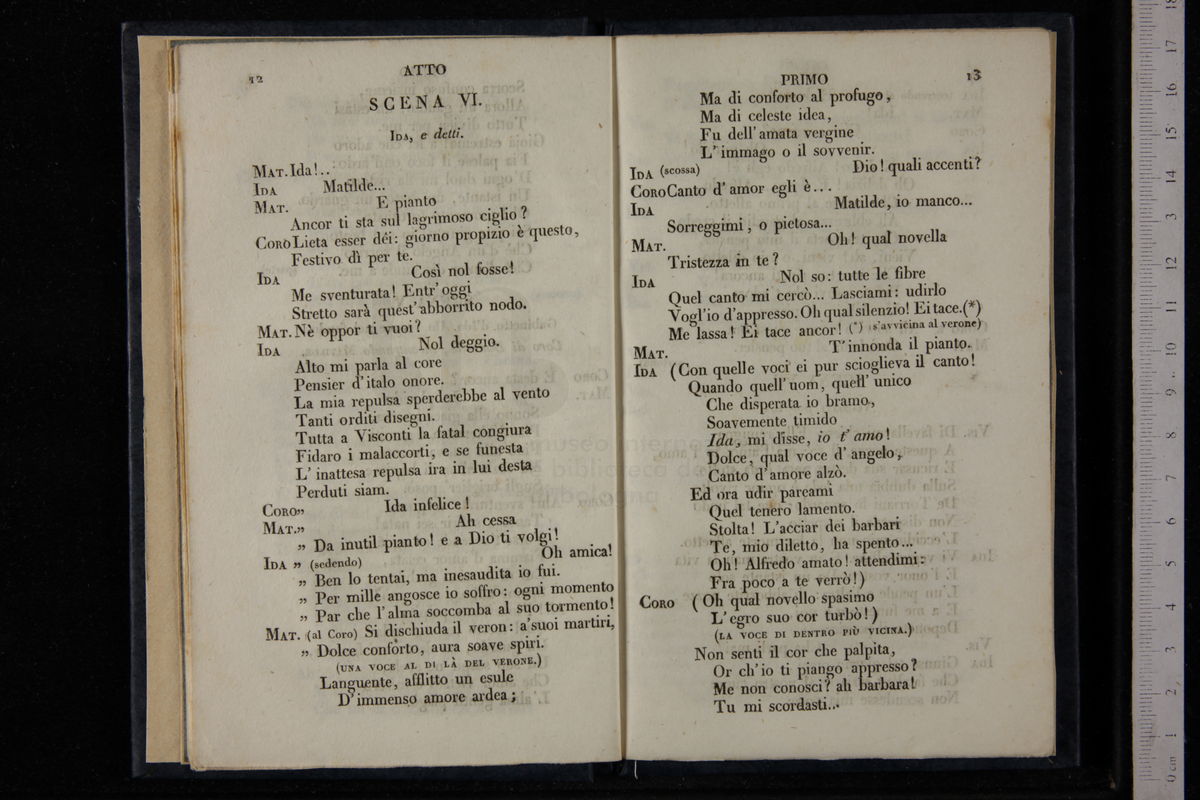 12
ATTO
SCENA VI.
IDA, e detti.
MAT. Ida!..
IDA Matilde...
MAT. E pianto
Ancor ti sta sul lagrimoso ciglio?
CORO Lieta esser déi: giorno propizio è questo,
Festivo dì per te.
IDA Così nol fosse!
Me sventurata! Entr' oggi
Stretto sarà quest' abborrito nodo.
MAT. Nè oppor ti vuoi?
IDA Nol deggio.
Alto mi parla al core
Pensier d' italo onore.
La mia repulsa sperderebbe al vento
Tanti orditi disegni.
Tutta a Visconti la fatal congiura
Fidaro i malaccorti, e se funesta
L' inattesa repulsa ira in lui desta
Perduti siam.
CORO» Ida infelice!
MAT.» Ah cessa
» Da inutil pianto! e a Dio ti volgi!
IDA » (sedendo) Oh amica!
» Ben lo tentai, ma inesaudita io fui.
» Per mille angosce io soffro: ogni momento
» Par che l' alma soccomba al suo tormento!
MAT. (al Coro) Si dischiuda il veron: a' suoi martiri,
» Dolce conforto, aura soave spiri.
(UNA VOCE AL DI LÀ DEL VERONE.)
Languente, afflitto un esule
D' immenso amore ardea;
PRIMO
13
Ma di conforto al profugo,
Ma di celeste idea,
Fu dell' amata vergine
L' immago o il sovvenir.
IDA (scossa) Dio! quali accenti?
CORO Canto d' amor egli è...
IDA Matilde, io manco...
Sorreggimi, o pietosa...
MAT. Oh! qual novella
Tristezza in te?
IDA Nol so: tutte le fibre
Quel canto mi cercò... Lasciami: udirlo
Vogl' io d' appresso. Oh qual silenzio! Ei tace.(*)
Me lassa! Ei tace ancor! (*) (s' avvicina al verone)
MAT. T' innonda il pianto.
IDA (Con quelle voci ei pur scioglieva il canto!
Quando quell' uom, quell' unico
Che disperata io bramo,
Soavemente timido
Ida, mi disse, io t' amo!
Dolce, qual voce d' angelo,
Canto d' amore alzò.
Ed ora udir pareami
Quel tenero lamento.
Stolta! L' acciar dei barbari
Te, mio diletto, ha spento...
Oh! Alfredo amato! attendimi:
Fra poco a te verrò!)
CORO (Oh qual novello spasimo
L' egro suo cor turbò!)
(LA VOCE DI DENTRO PIÙ VICINA.)
Non senti il cor che palpita,
Or ch' io ti piango appresso?
Me non conosci? ah barbara!
Tu mi scordasti...